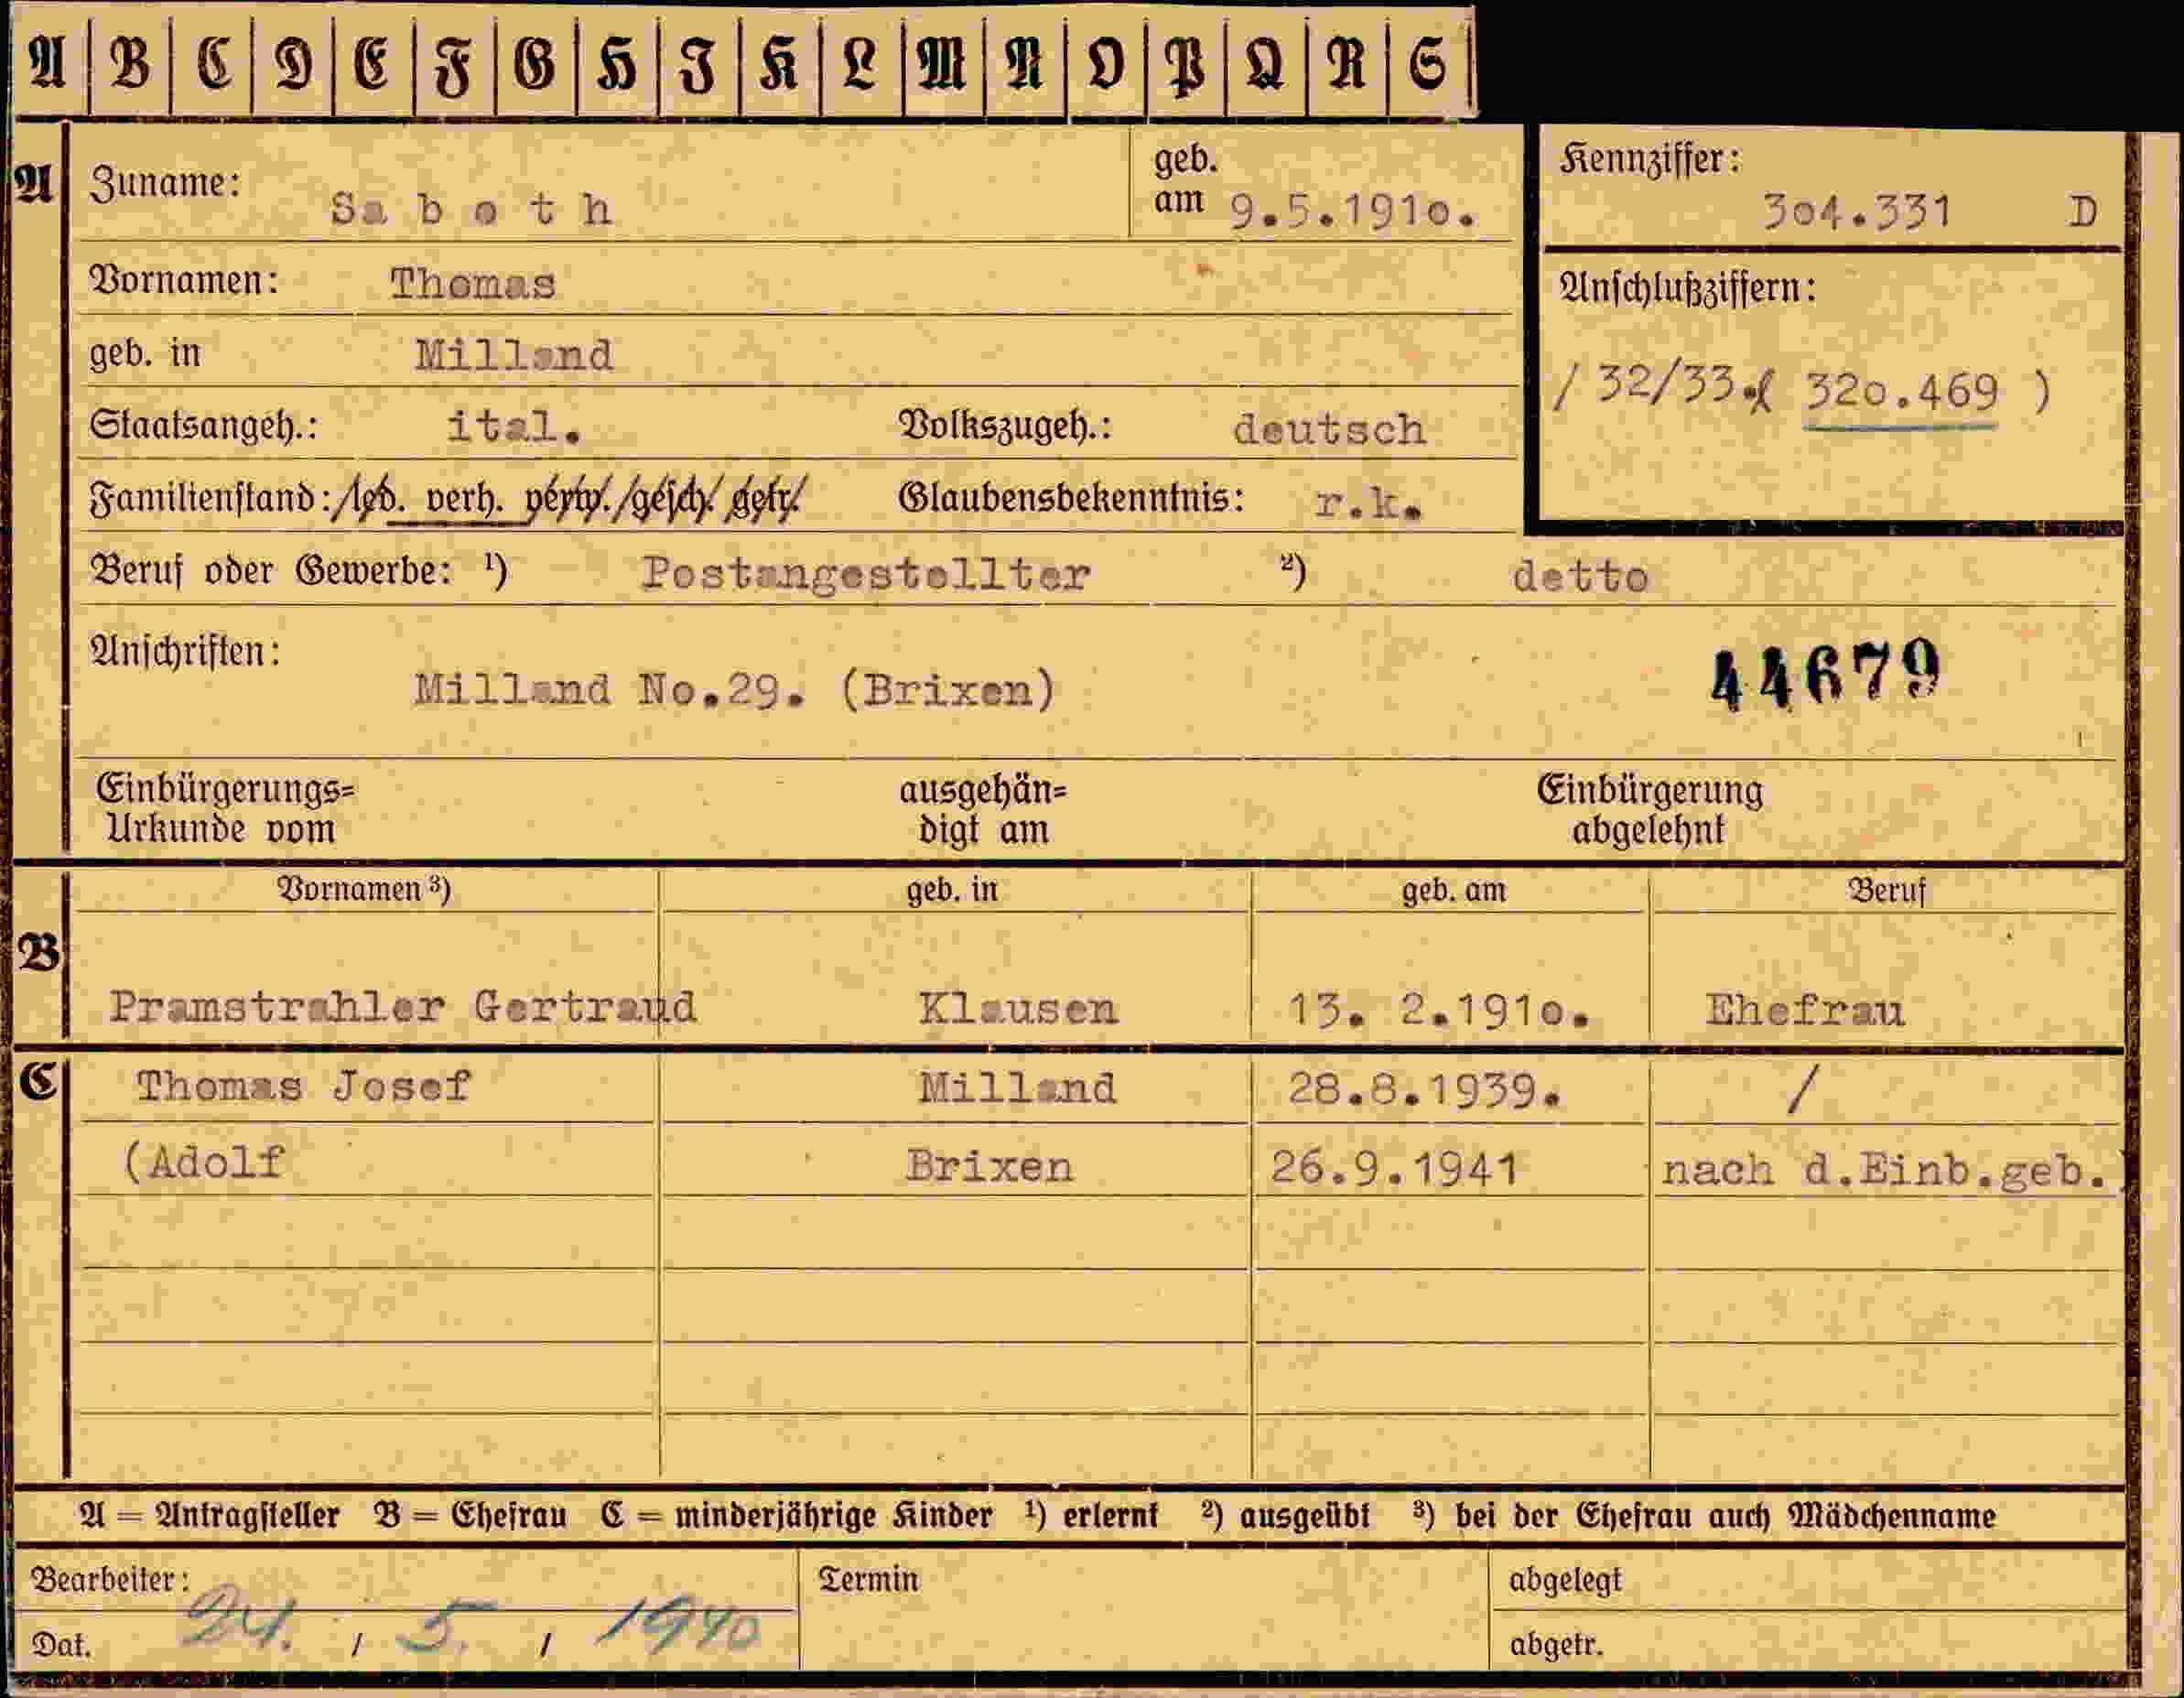 A B C D E F G H I K L M N O P Q R S
A Zuname: Saboth geb. am 9.5.1910. Kennziffer: 304.331 D
Vornamen: Thomas Anschlußziffern:
geb. in Milland / 32/33.( 320.469 )
Staatsangeh.: ital. Volkszugeh.: deutsch
Familienstand: led. verh. verw. gesch. getr. Glaubensbekenntnis: r.k.
Beruf oder Gewerbe: ¹) Postangestellter ²) detto
Anschriften: 44679
Milland No.29. (Brixen)
Einbürgerungs= ausgehän= Einbürgerung
Urkunde vom digt am abgelehnt
Vornamen ³) geb. in geb. am Beruf
B
Pramstrahler Gertraud Klausen 13. 2.1910. Ehefrau
C Thomas Josef Milland 28.8.1939. /
(Adolf Brixen 26.9.1941 nach d.Einb.geb.)
A = Antragsteller B = Ehefrau C = minderjährige Kinder ¹) erlernt ²) ausgeübt ³) bei der Ehefrau auch Mädchenname
Bearbeiter: Termin abgelegt
Dat. 24. / 5. / 1940 abgetr.